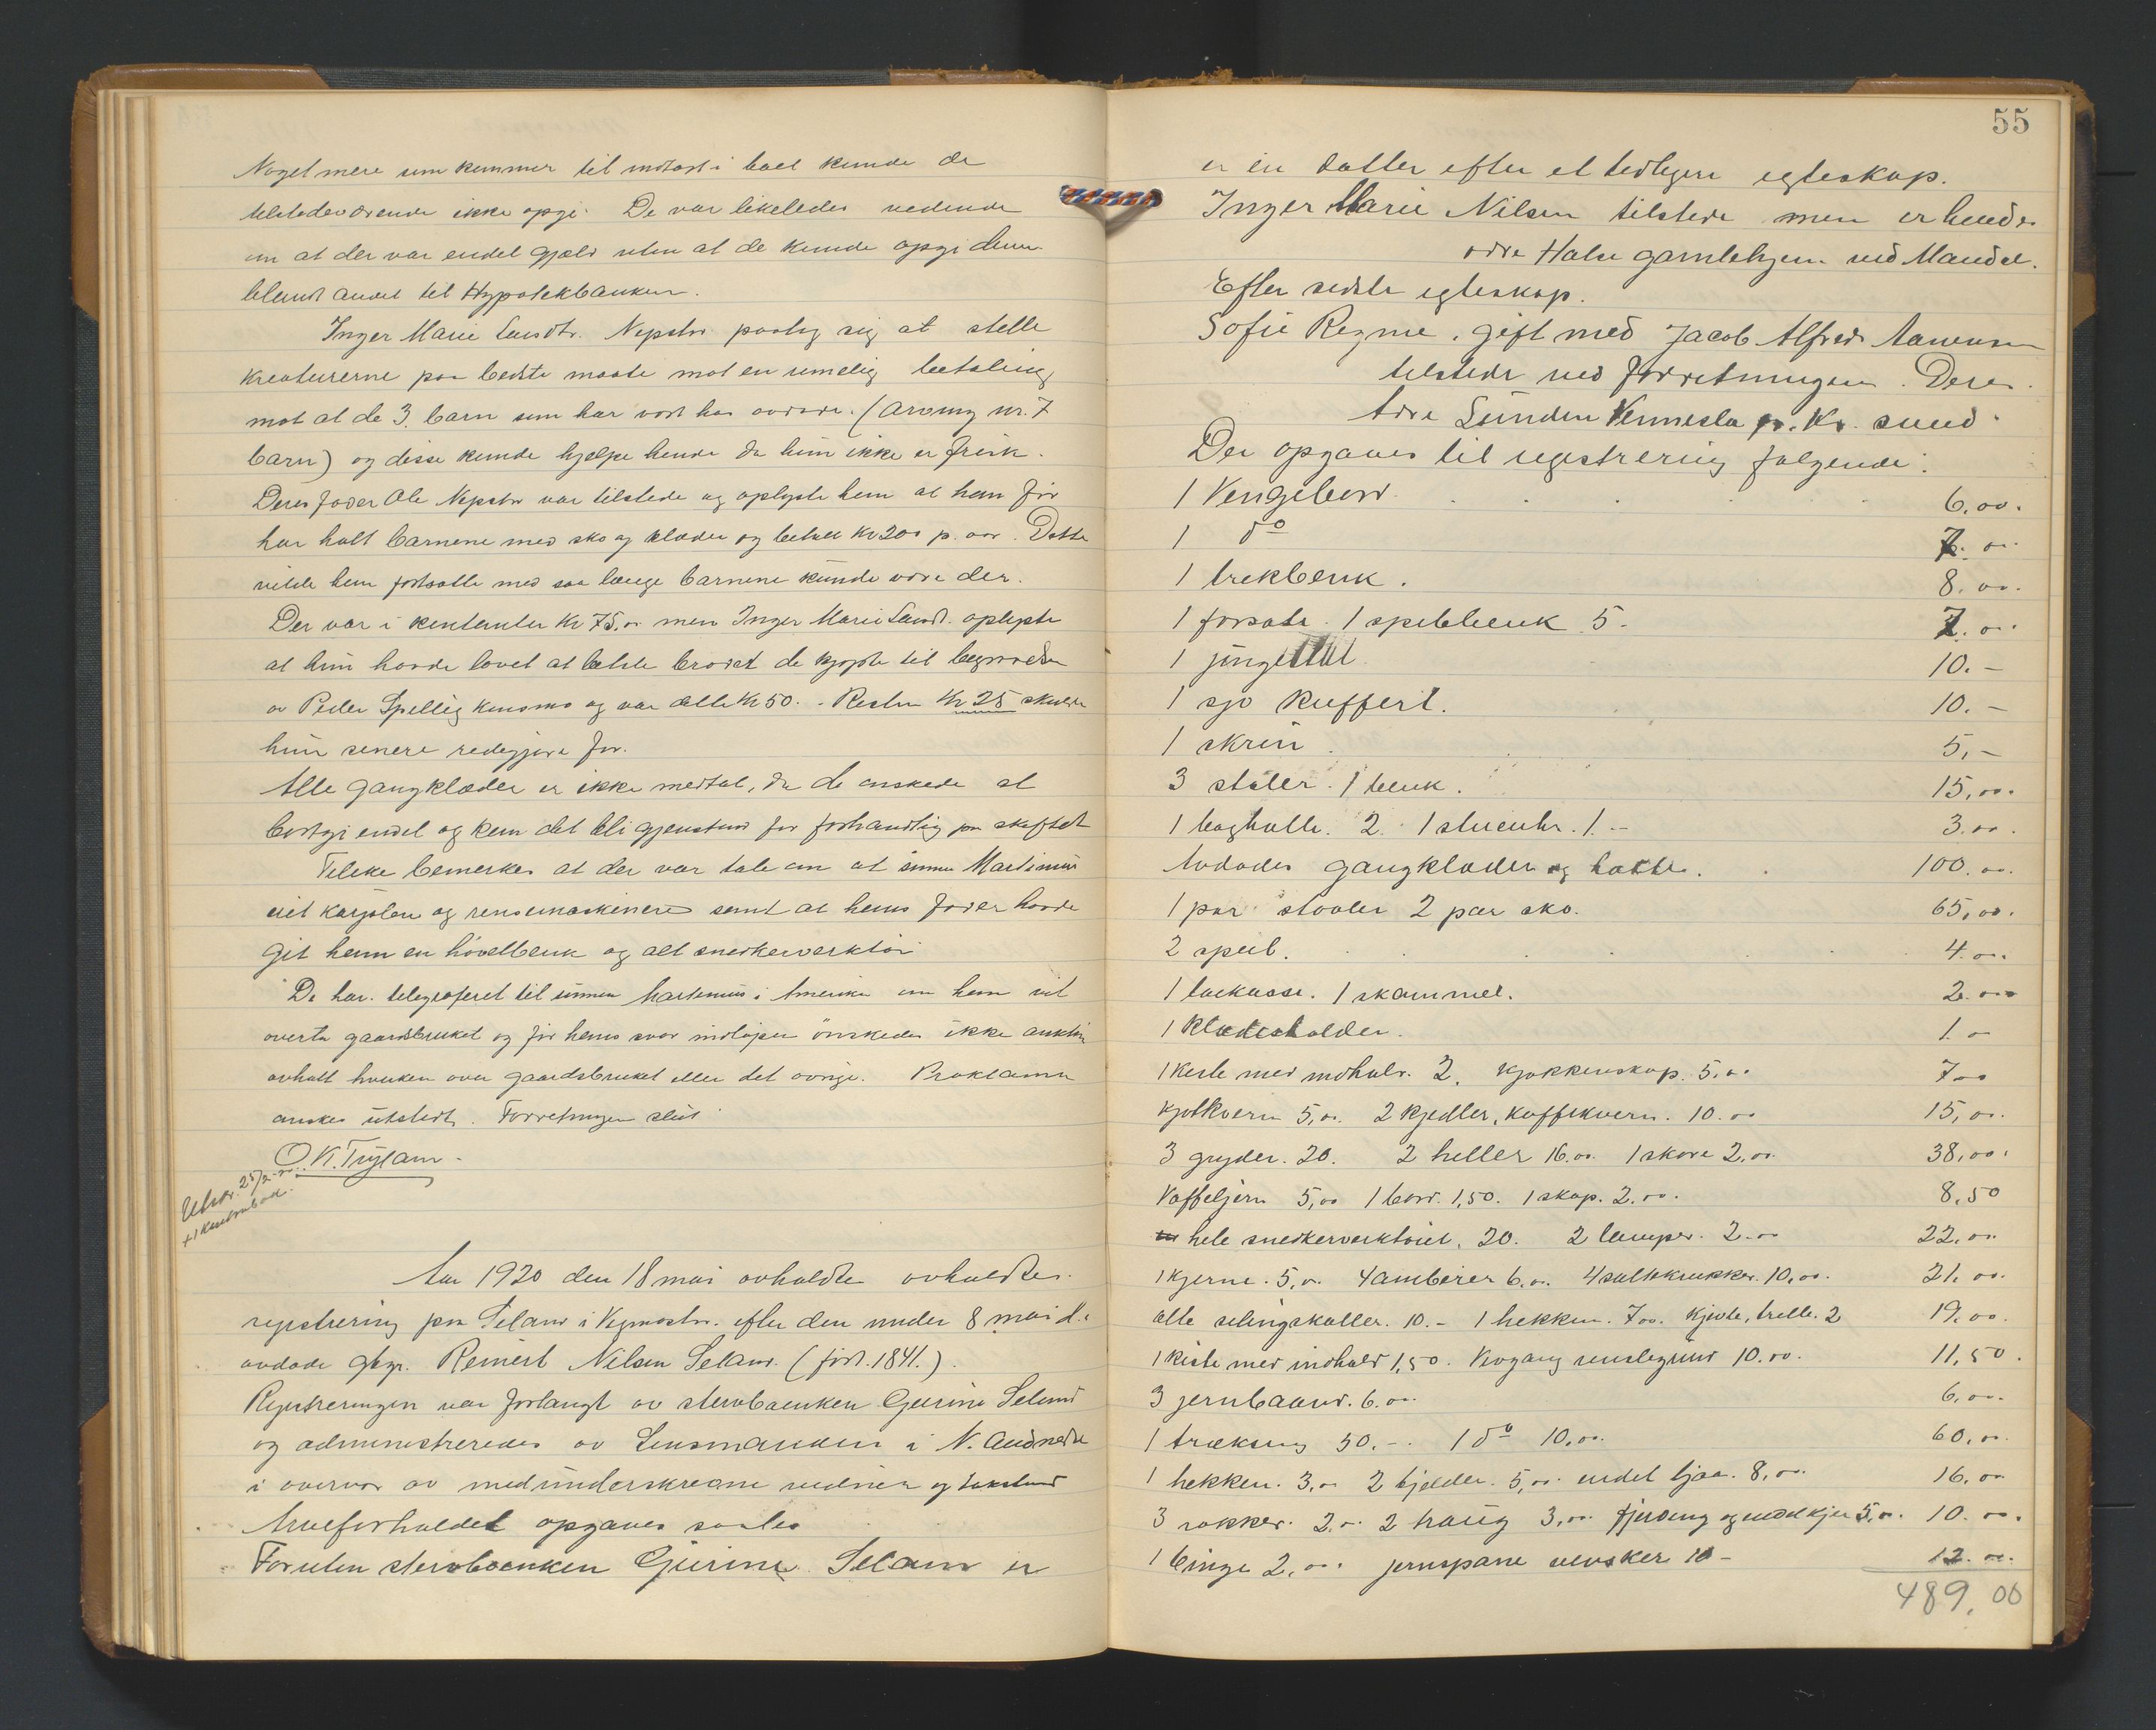 Noget mere som kommer til indtægt i boet kunde de
tilstedeværende ikke opgi. De var likeledes vidende
om at der var endel gjæld uten at de kunde opgi denne
blandt andet til Hypotekbanken.
Inger Marie Larsdtr. Nepstad paatog sig at stelle
kreaturerne paa bedste maate mot en rimelig betaling
mot at de 3 barn som har vært hos avdøde. (Arving nr. 7
barn) og disse kunde hjelpe hende da hun ikke er frisk.
Deres fader Ole Nepstad var tilstede og oplyste han at han før
har holt barnene med sko og klæder og betalt Kr 200 p. aar. Dette
vilde han fortsætte med saa længe barnene kunde være der.
Der var i kontanter Kr 75,00 men Inger Marie Larsd. oplyste
at hun havde lovet at betale brødet de kjøpte til begravelsen
av Peder Spilling og var dette Kr 50. Resten Kr 25 skulde
hun senere redegjøre for.
Alle gangklæder er ikke medtat, da de ønskede at
bortgi endel og kan det bli gjenstand for forhandling paa skiftet
Tilike bemerkes at der var tale om at sønnen Martinius
eiet karjolen og rensemaskinen samt at hans fader havde
git ham en høvelbenk og alt snedkerverktøi
De har telegraferet til sønnen Martinius i Amerika om han vil
overta gaardsbruket og før hans svar indløper ønskedes ikke auktion
avholt hverken over gaardsbruket eller det øvrige. Proklama
ønskes utstedt. Forretningen slut
O. K. Trygsland
Utskr. 25/2-
Aar 1920 den 18 mai avholdtes avholdtes
registrering paa Seland i Vegusdal efter den under 8 mai d.a.
avdøde gbgr. Reinert Nilsen Seland. (født. 1841.)
Registreringen var forlangt av sterboenken Gurine Seland
og administreredes av Lensmanden i N. Audnedal
i overvær av medunderskrevne vidner og takstmænd
Arveforholdet opgaves saaledes
Foruten sterboenken Gurine Seland er
55
er en datter efter et tidligere egteskap.
Inger Marie Nilsen tilstede men er hendes
adre Halse gamlehjem ved Mandal.
Efter sidste egteskap.
Sofie Regine, gift med Jacob Alfred Aanensen
tilstede ved forretningen. Deres
Adre Vennesla pr. Kr. sand.
Der opgaves til registrering følgende:
1 Vengebord 6.00.
1 do 7.00
1 trekbenk. 8.00.
1 forsats. 1 spebbenk 5. 7.00
1 10.-
1 sjø kuffert. 10.-
1 skrin 5,-
3 stoler. 1 benk. 15,00.
1 baghulle. 2. 1 stueuhr. 1.- 3.00.
Avdødes gangklæder og hatte. 100.00.
1 par støvler 2 par sko. 65,00.
2 speil. 4.00.
1 1 skammel. 2.00
1 Klædesholder. 1.0
1 kiste med indhold. 2. kjøkkenskap. 5.00 7.00
Kjøtkvern 5,00. 2 kjedler, kaffekvern. 10.00 15,00.
3 gryder. 20. 2 heller 16.00. 1 skore 2.00. 38.00.
Vaffeljern 5,00 1 bord. 1,50. 1 skap. 2.00. 8,50
hele snedkerverktøiet. 20. 2 lamper. 2.00 22.00.
1 kjerne. 5.00. 4 ambarer 6.00. 4 saltkrukker. 10,00. 21.00.
alle 10.- 1 hekken. 7.00. 2 19.00.
1 kiste med indhold 1,50. 10.00. 11,50.
3 jernbaand. 6.00 6.00.
1 træksaug 50.-. 1 do 10.00. 60.00.
1 hekken. 3,00 2 bjelder. 5,00. endel ljaa. 8.00. 16.00
3 rokker. 2.00. 2 3.00. 5.00. 10.00.
1 binge 2,00. jernspane 10- 12.00.
489.00